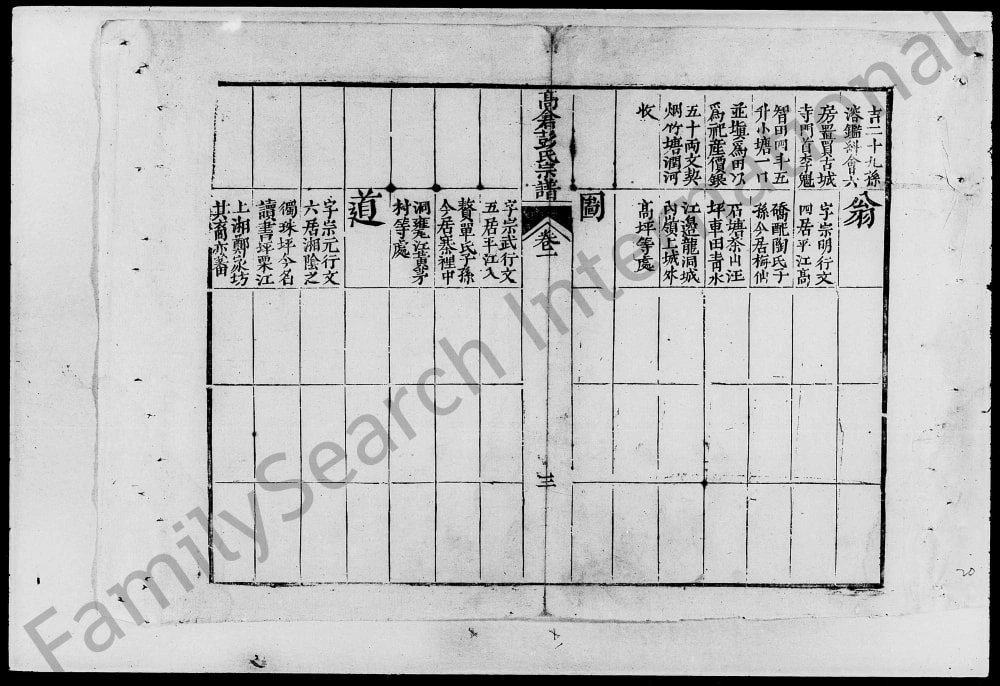 吉二十九孫
濬鑑科會六
房置買古城
寺門首李魁
智田四斗五
升小塘一口
並塡爲田以
爲祀産價銀
五十兩文契
烟竹塘潤河
收
翁
字宗明行文
四居平江高
礄配陶氏子
孫今居梅仙
石塘茶山汪
坪車田青水
江邉龍洞城
内嶺上城外
高坪等處
圖
高倉彭氏宗譜
卷一
三
字宗武行文
五居平江入
贅單氏子孫
今居寨裡中
洞甕江黄茅
村等處
道
字宗元行文
六居湘陰之
獨珠坪今名
讀書坪栗江
上湘鄭家坊
其裔亦蕃
20
FamilySearch International